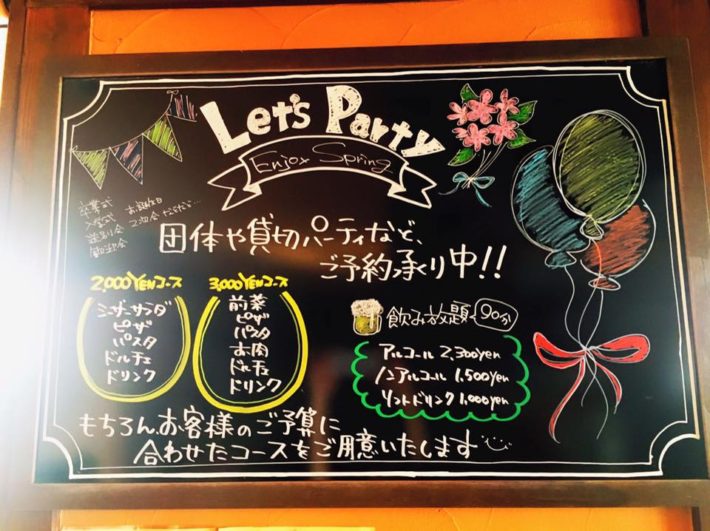 Let's Party
Enjoy Spring
卒業式 お誕生日
入学式 2次会 などなど…
送別会
歓迎会
団体や貸切パーティなど、
ご予約承り中!!
2,000YENコース
シーザーサラダ
ピザ
パスタ
ドルチェ
ドリンク
3,000YENコース
前菜
ピザ
パスタ
お肉
ドルチェ
ドリンク
飲み放題 90分
アルコール 2,300yen
ノンアルコール 1,500yen
ソフトドリンク 1,000yen
もちろん、お客様のご予算に
合わせたコースをご用意いたします